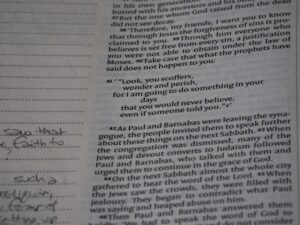 in his own generation
buried with his ancestors and his body
37 But the one whom God raised from the dead
did not see decay.
38 "Therefore, my friends, I want you to know
that through Jesus the forgiveness of sins is pro-
claimed to you. 39 Through him everyone who
believes is set free from every sin, a justification
you were not able to obtain under the law of
Moses. 40 Take care that what the prophets have
said does not happen to you:
41 "'Look, you scoffers,
wonder and perish,
for I am going to do something in your
days
that you would never believe,
even if someone told you.'"
42 As Paul and Barnabas were leaving the syna-
gogue, the people invited them to speak further
about these things on the next Sabbath. 43 When
the congregation was dismissed, many of the
Jews and devout converts to Judaism followed
Paul and Barnabas, who talked with them and
urged them to continue in the grace of God.
44 On the next Sabbath almost the whole city
gathered to hear the word of the Lord. 45 When
the Jews saw the crowds, they were filled with
jealousy. They began to contradict what Paul
was saying and heaped abuse on him.
46 Then Paul and Barnabas answered them
We had to speak the word of God to
do not consider
say that
faith to
such a
fear of
setting up